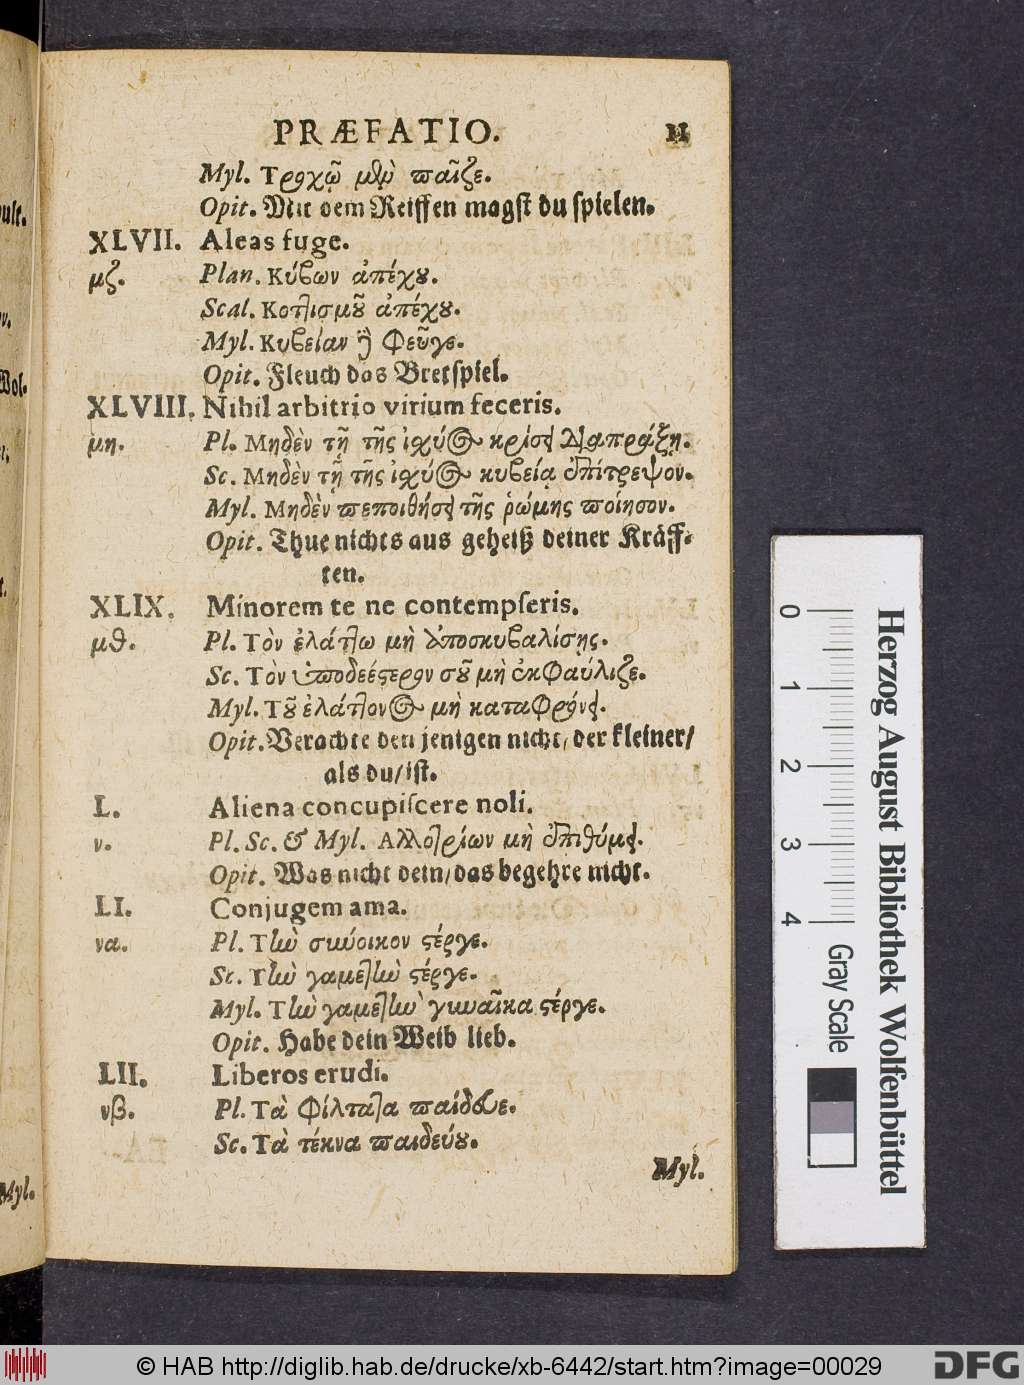 PRÆFATIO. 11
Myl. Τροχῷ μὲν παῖζε.
Opit. Mit dem Reiffen magst du spielen.
XLVII. Aleas fuge.
μζ. Plan. Κύβων ἀπέχου.
Scal. Κοττισμοῦ ἀπέχου.
Myl. Κυβείαν δὲ φεῦγε.
Opit. Fleuch das Bretspiel.
XLVIII. Nihil arbitrio virium feceris.
μη. Pl. Μηδὲν τῇ τῆς ἰσχύος κρίσει διαπράξῃ.
Sc. Μηδὲν τῇ τῆς ἰσχύος κυβείᾳ ἐπίτρεψον.
Myl. Μηδὲν πεποιθήσει τῆς ῥώμης ποίησον.
Opit. Thue nichts aus geheiß deiner Kräff-
ten.
XLIX. Minorem te ne contempſeris.
μθ. Pl. Τὸν ἐλάττω μὴ ἀποσκυβαλίσῃς.
Sc. Τὸν ὑποδεέστερον σοῦ μὴ ἐκφαύλιζε.
Myl. Τοῦ ἐλάττονος μὴ καταφρόνει.
Opit. Verachte den jenigen nicht/ der kleiner/
als du/ ist.
L. Aliena concupiſcere noli.
ν. Pl. Sc. & Myl. Αλλοτρίων μὴ ἐπιθύμει.
Opit. Was nicht dein/ das begehre nicht.
LI. Conjugem ama.
να. Pl. Τὴν σύνοικον στέργε.
Sc. Τὴν γαμετὴν στέργε.
Myl. Τὴν γαμετὴν γυναῖκα στέργε.
Opit. Habe dein Weib lieb.
LII. Liberos erudi.
νβ. Pl. Τὰ φίλτατα παίδευε.
Sc. Τὰ τέκνα παιδεύου.
Myl.
0 1 2 3 4
Gray Scale
Herzog August Bibliothek Wolfenbüttel
© HAB http://diglib.hab.de/drucke/xb-6442/start.htm?image=00029
DFG